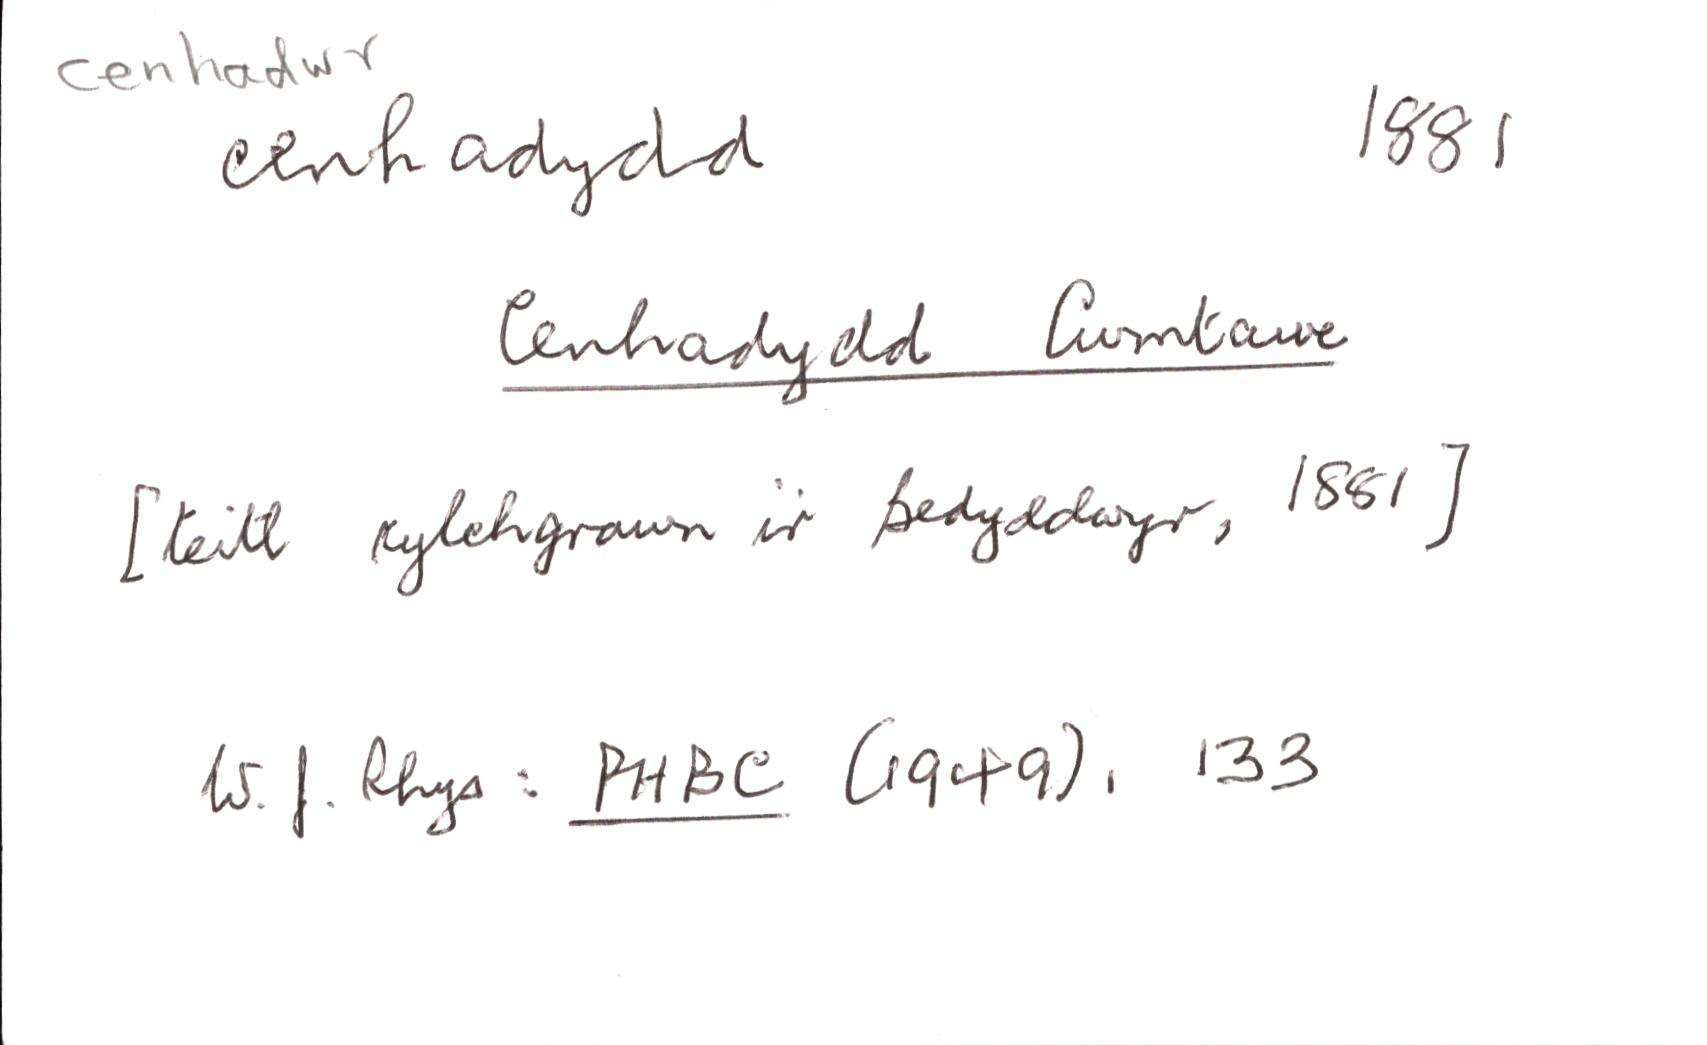 cenhadwr
cenhadydd 1881
Cenhadydd Cwmtawe
[teitl cylchgrawn i'r Bedyddwyr, 1881]
W. J. Rhys: PHBC (1949), 133